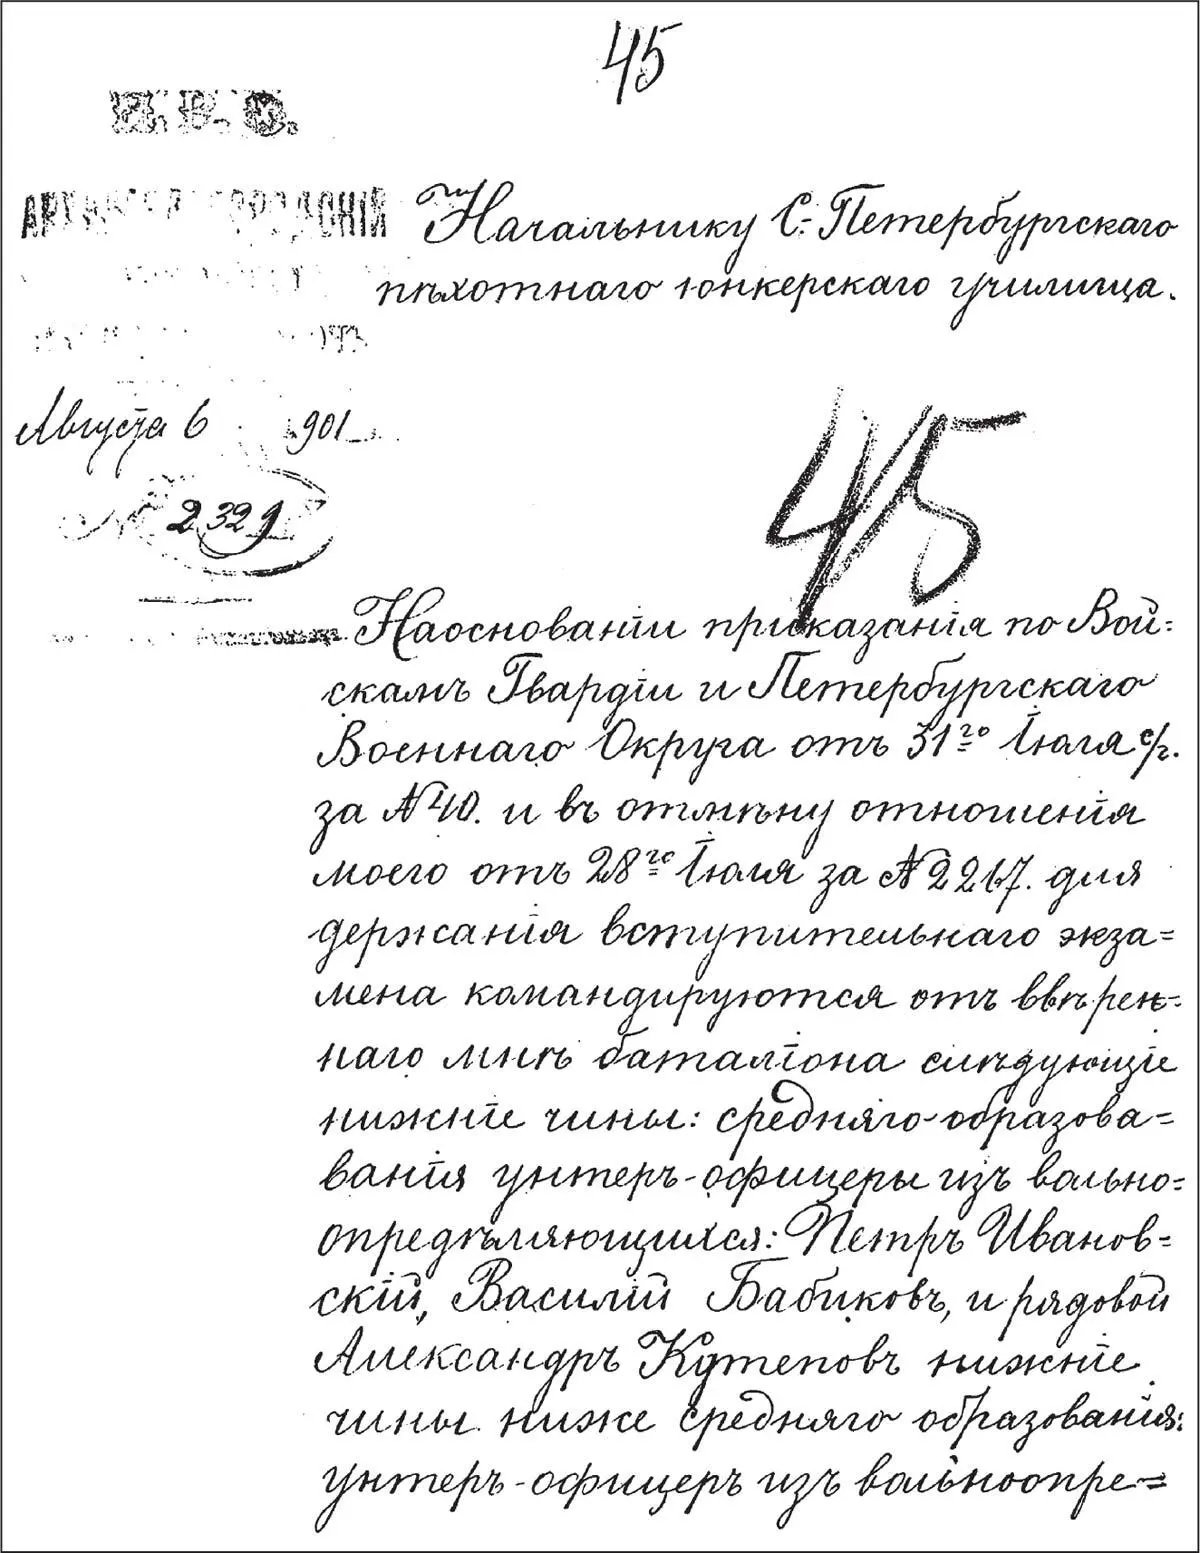 45
М. В. О.
АРХАНГЕЛОГОРОДСКІЙ
Начальнику С.-Петербургскаго
пѣхотнаго юнкерскаго училища.
Августа 6 901
№ 2329
45
На основаніи приказанія по Вой=
скамъ Гвардіи и Петербургскаго
Военнаго Округа отъ 31го Іюля с/г.
за №40. и въ отмѣну отношенія
моего отъ 28го Іюля за №2217. для
держанія вступительнаго экза=
мена командируются отъ ввѣрен=
наго мнѣ баталіона слѣдующіе
нижніе чины: средняго образова=
ванія унтеръ-офицеры изъ вольно=
опредѣляющихся: Петръ Иванов=
скій, Василій Бабиковъ, и рядовой
Александръ Кутеповъ нижніе
чины ниже средняго образованія:
унтеръ-офицеръ изъ вольноопре=